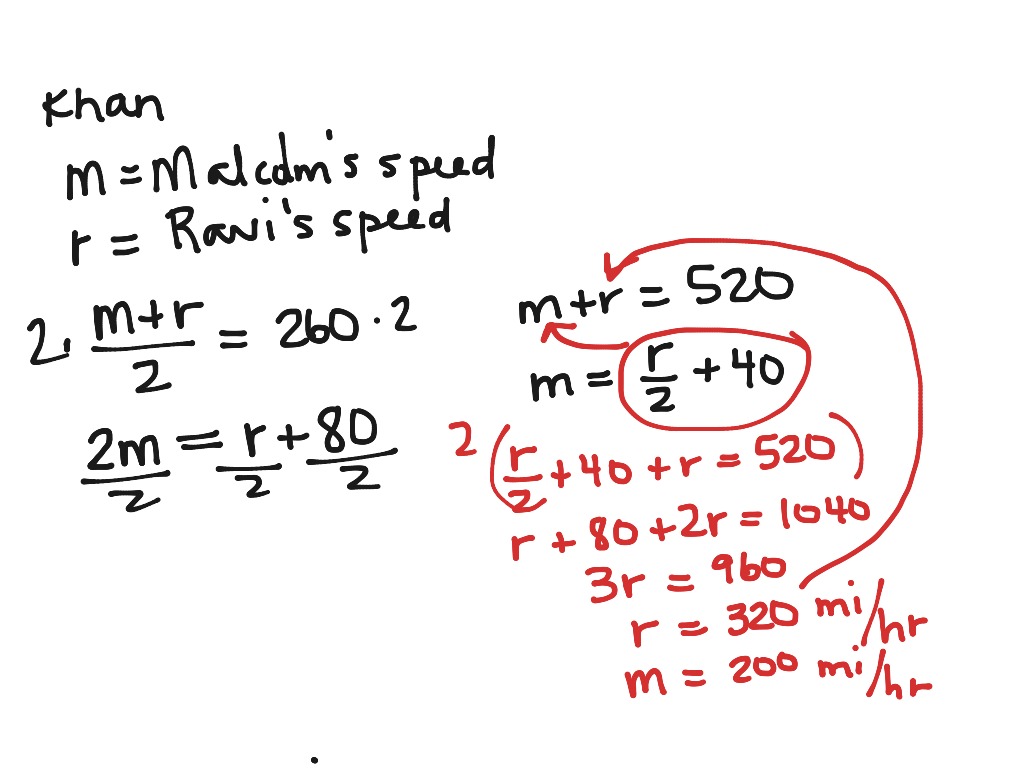 Khan
m = Malcolm's speed
r = Ravi's speed
2 · (m+r)/2 = 260 · 2
2m/2 = r/2 + 80/2
m+r = 520
m = r/2 + 40
2 (r/2 + 40 + r = 520)
r + 80 + 2r = 1040
3r = 960
r = 320 mi/hr
m = 200 mi/hr